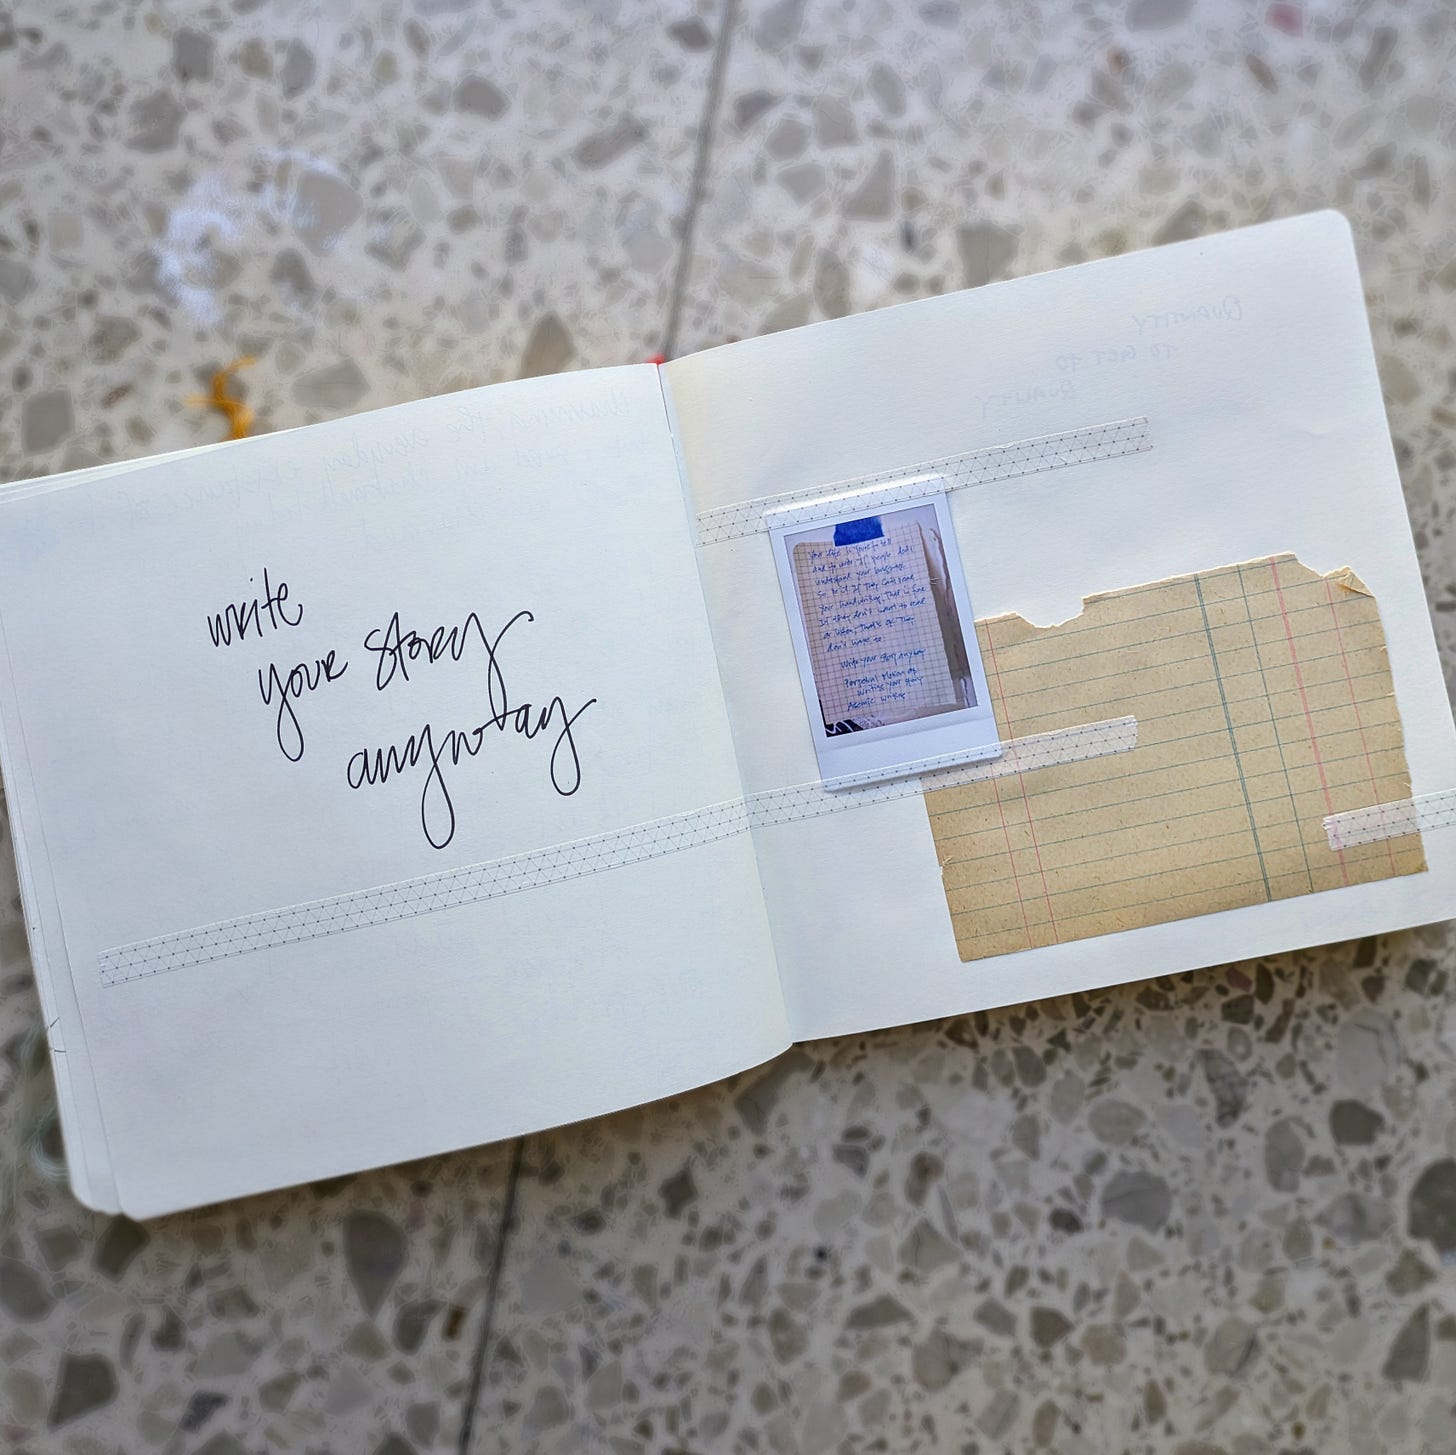 write
your story
anyway
Your life is yours to tell
and to write. If people don't
understand your language
So be it. If they can't read
your handwriting, that is fine
If they don't want to read
or listen, that's ok. They
don't have to.
Write your story anyway
Perpetual Motion of
Writing your story
Asemic Writing
QUANTITY
TO GET TO
QUALITY